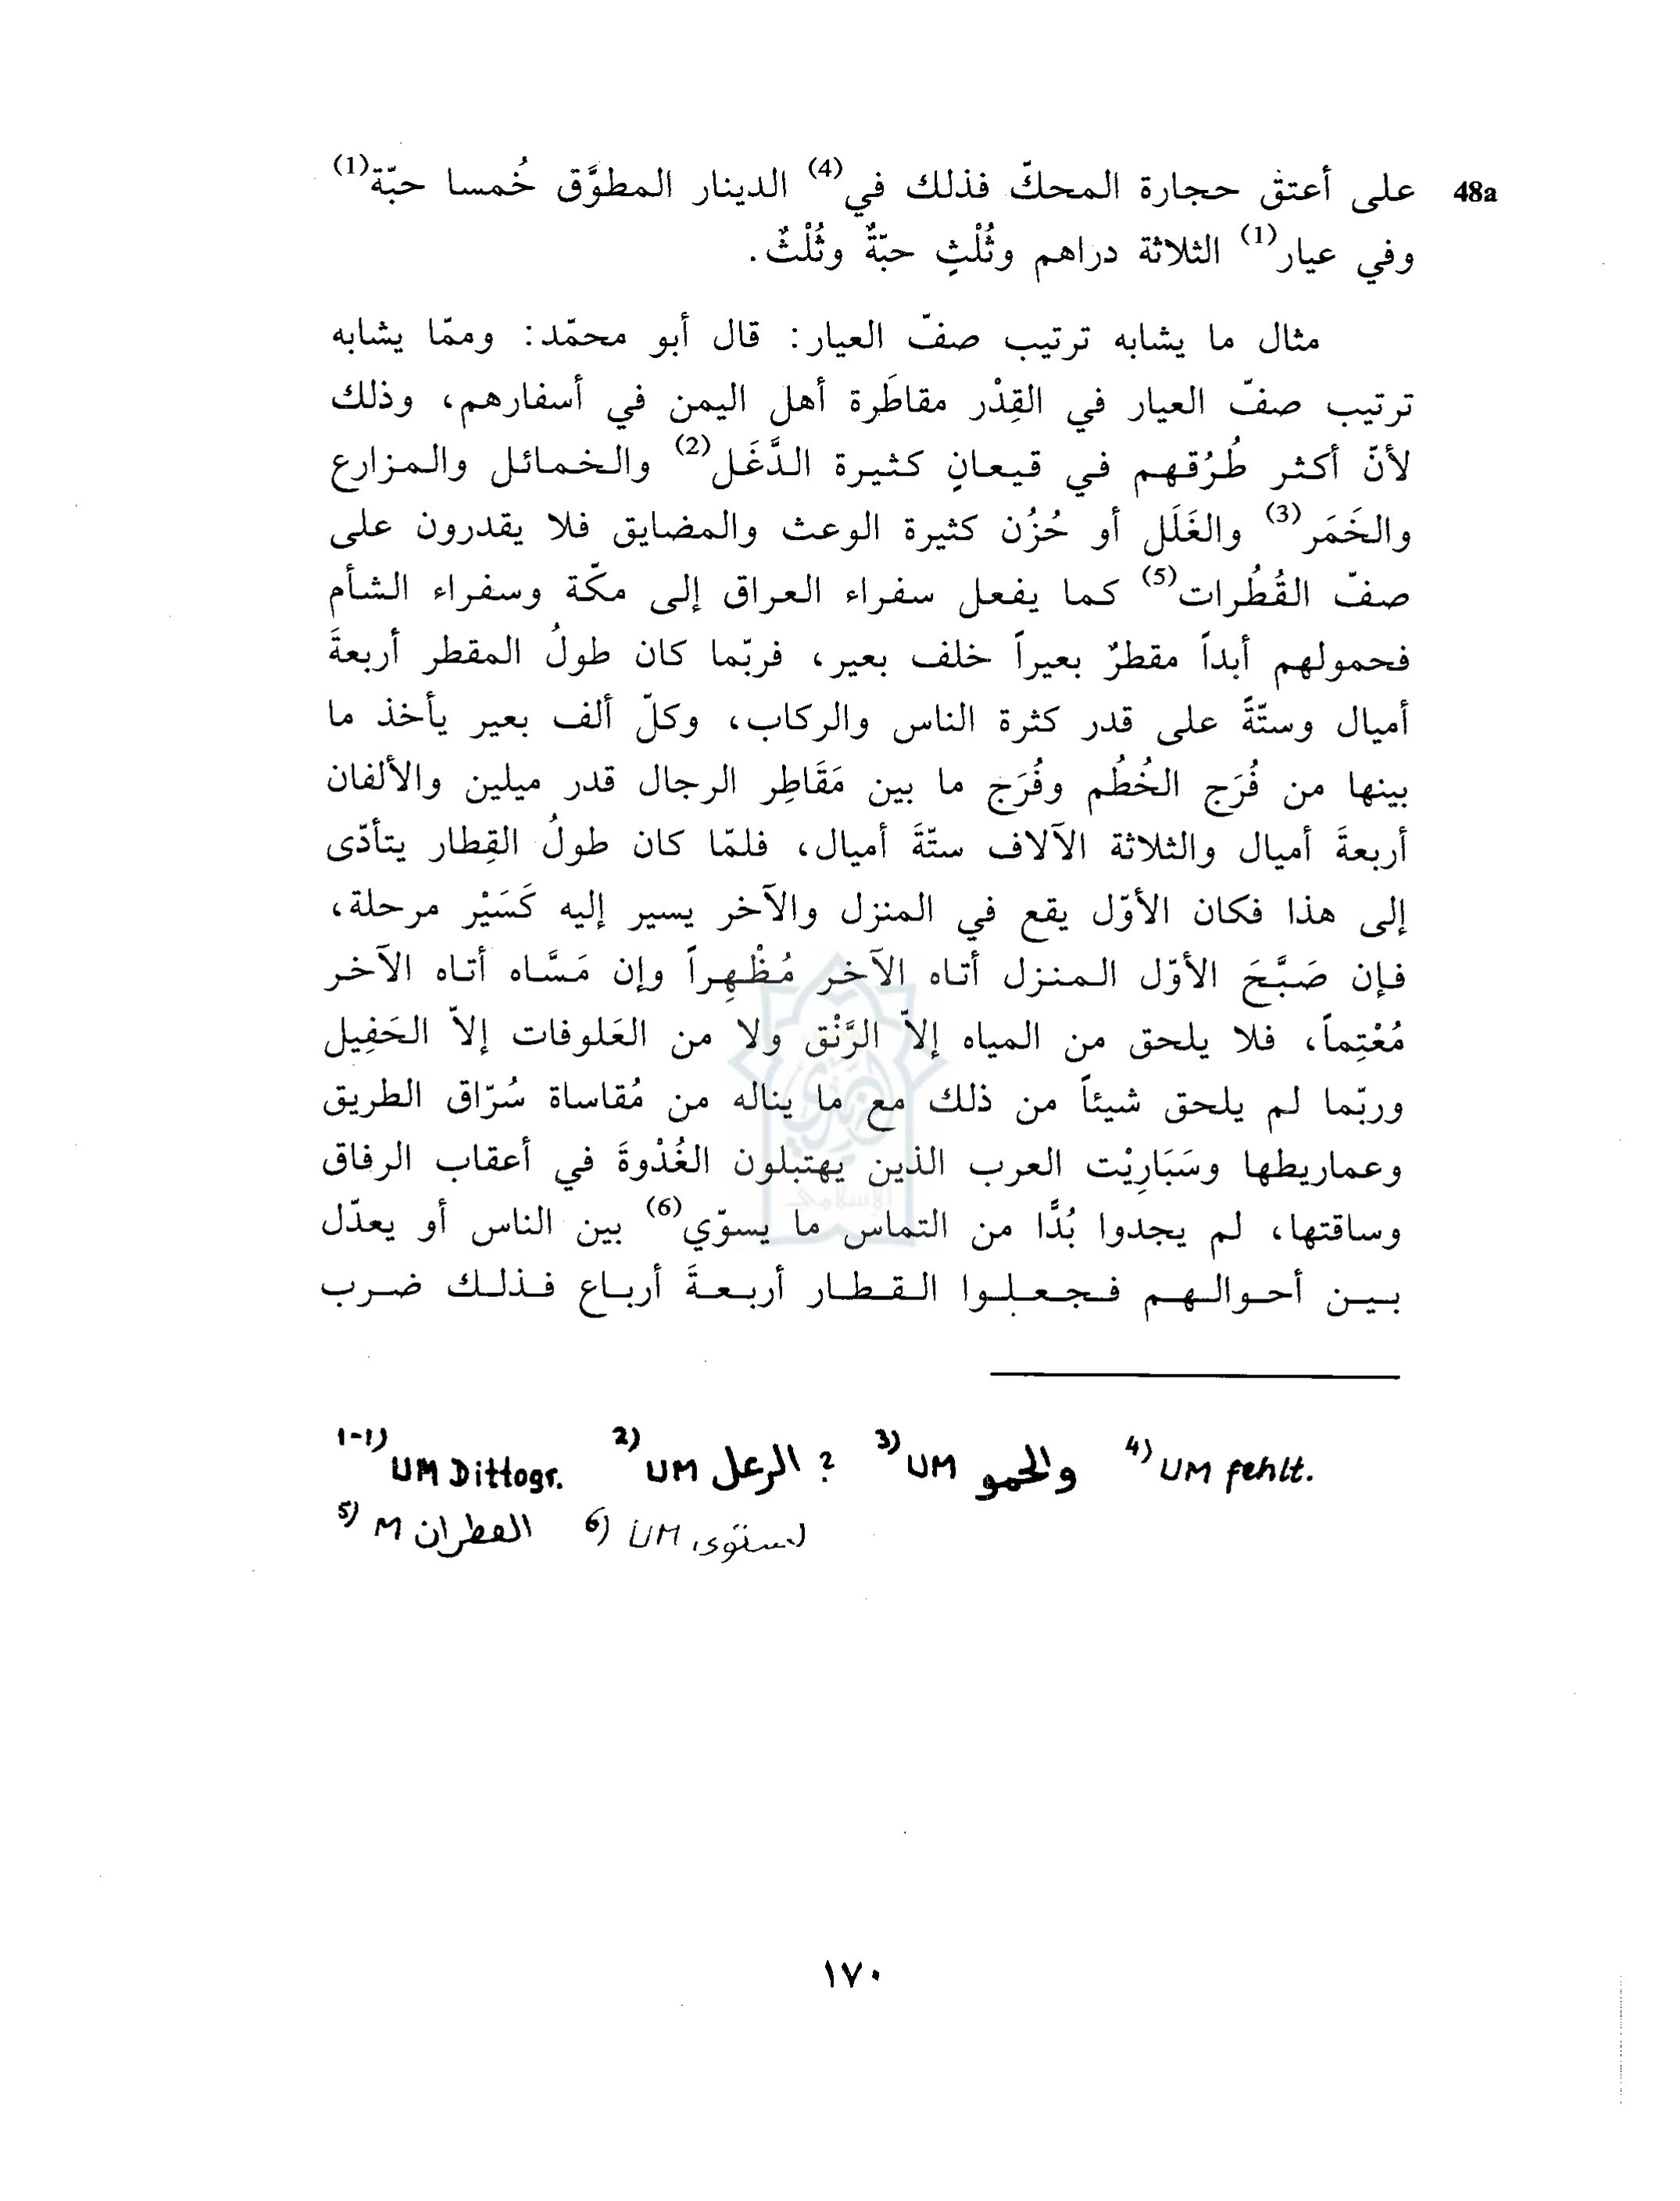 48a على أعتق حجارة المحكّ فذلك في(4) الدينار المطوَّق خُمسا حبّة(1)
وفي عيار(1) الثلاثة دراهم وثُلْثٍ حبّةٌ وثُلْثٌ.
مثال ما يشابه ترتيب صفّ العيار: قال أبو محمّد: وممّا يشابه
ترتيب صفّ العيار في القِدْر مقاطَرة أهل اليمن في أسفارهم، وذلك
لأنّ أكثر طُرُقهم في قيعانٍ كثيرة الدَّغَل(2) والخمائل والمزارع
والخَمَر(3) والغَلَل أو حُزُن كثيرة الوعث والمضايق فلا يقدرون على
صفّ القُطُرات(5) كما يفعل سفراء العراق إلى مكّة وسفراء الشأم
فحمولهم أبداً مقطرٌ بعيراً خلف بعير، فربّما كان طولُ المقطر أربعةَ
أميال وستّةً على قدر كثرة الناس والركاب، وكلّ ألف بعير يأخذ ما
بينها من فُرَج الخُطُم وفُرَج ما بين مَقَاطِر الرجال قدر ميلين والألفان
أربعةَ أميال والثلاثة الآلاف ستّةَ أميال، فلمّا كان طولُ القِطار يتأدّى
إلى هذا فكان الأوّل يقع في المنزل والآخر يسير إليه كَسَيْر مرحلة،
فإن صَبَّحَ الأوّل المنزل أتاه الآخر مُظْهِراً وإن مَسَّاه أتاه الآخر
مُعْتِماً، فلا يلحق من المياه إلاّ الرَّنْق ولا من العَلوفات إلاّ الحَفِيل
وربّما لم يلحق شيئاً من ذلك مع ما يناله من مُقاساة سُرّاق الطريق
وعماريطها وسَبَارِيْت العرب الذين يهتبلون الغُدْوةَ في أعقاب الرفاق
وساقتها، لم يجدوا بُدًّا من التماس ما يسوّي(6) بين الناس أو يعدّل
بين أحوالهم فجعلوا القطار أربعةَ أرباع فذلك ضرب
1-1) UM Dittogr. 2) UM الرعل ? 3) UM والحمو 4) UM fehlt.
5) M القطران 6) UM
١٧٠